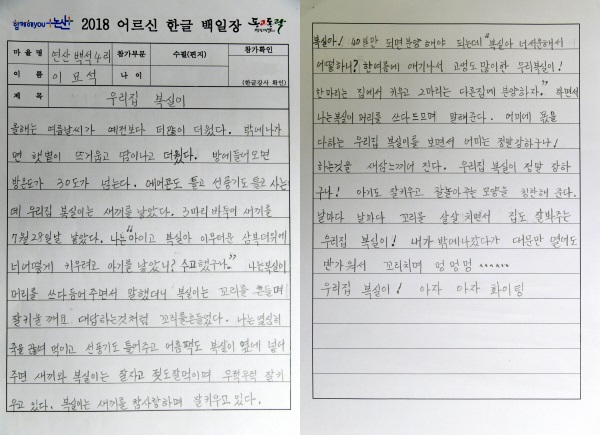 함께해YOU 논산 2018 어르신 한글 백일장 동고동락
마을명 연산 백석 4리 참가부문 수필(편지) 참가확인
이름 이묘석 나이 (한글강사 확인)
제목 우리집 복실이
올해는 여름날씨가 예전보다 더많이 더웠다. 밖에나가
면 햇볕이 뜨거웁고 땀이나고 더웠다. 방에들어오면
방온도가 30도가 넘는다. 에어콘도 틀고 선풍기도 틀고 사는
데 우리집 복실이는 새끼를 낳았다. 3마리 바둑이 새끼를
7월 28일날 낳았다. 나는 "아이고 복실아 이무더운 삼복더위에
너어떻게 키우려고 아기를 낳았니? 수고했구나." 나는복실이
머리를 쓰다듬어주면서 말했더니 복실이는 꼬리를 흔들며
잘키울께요 대답하는것처럼 꼬리를흔들었다. 나는열심히
죽을 끓여 먹이고 선풍기도 틀어주고 어름팩도 복실이 옆에 넣어
주면 새끼와 복실이는 잘자고 젖도잘먹이며 무럭무럭 잘키
우고 있다. 복실이는 새끼를 참사랑하며 잘키우고 있다.
복실아! 40일만 되면 분양해야 되는데 "복실아 너서운해서
어떨하니? 한여름에 애기나서 고생도 많이한 우리복실이!
한마리는 집에서 키우고 2마리는 다른집에 분양하자." 하면서
나는복실이 머리를 쓰다드므며 말해준다. 어미에 몫을
다하는 우리집 복실이를 보면서 어미는 정말강하구나!
하는것을 새삼느끼어 진다. 우리집 복실이 정말 장하
구나! 아기도 잘키우고 잘놀아주는 모양을 칭찬해 준다.
날마다 날마다 꼬리를 살살 치면서 집도 잘봐주는
우리집 복실이! 내가 밖에나갔다가 대문만 열어도
반가워서 꼬리치며 멍멍멍 ......
우리집 복실이! 아자 아자 화이팅